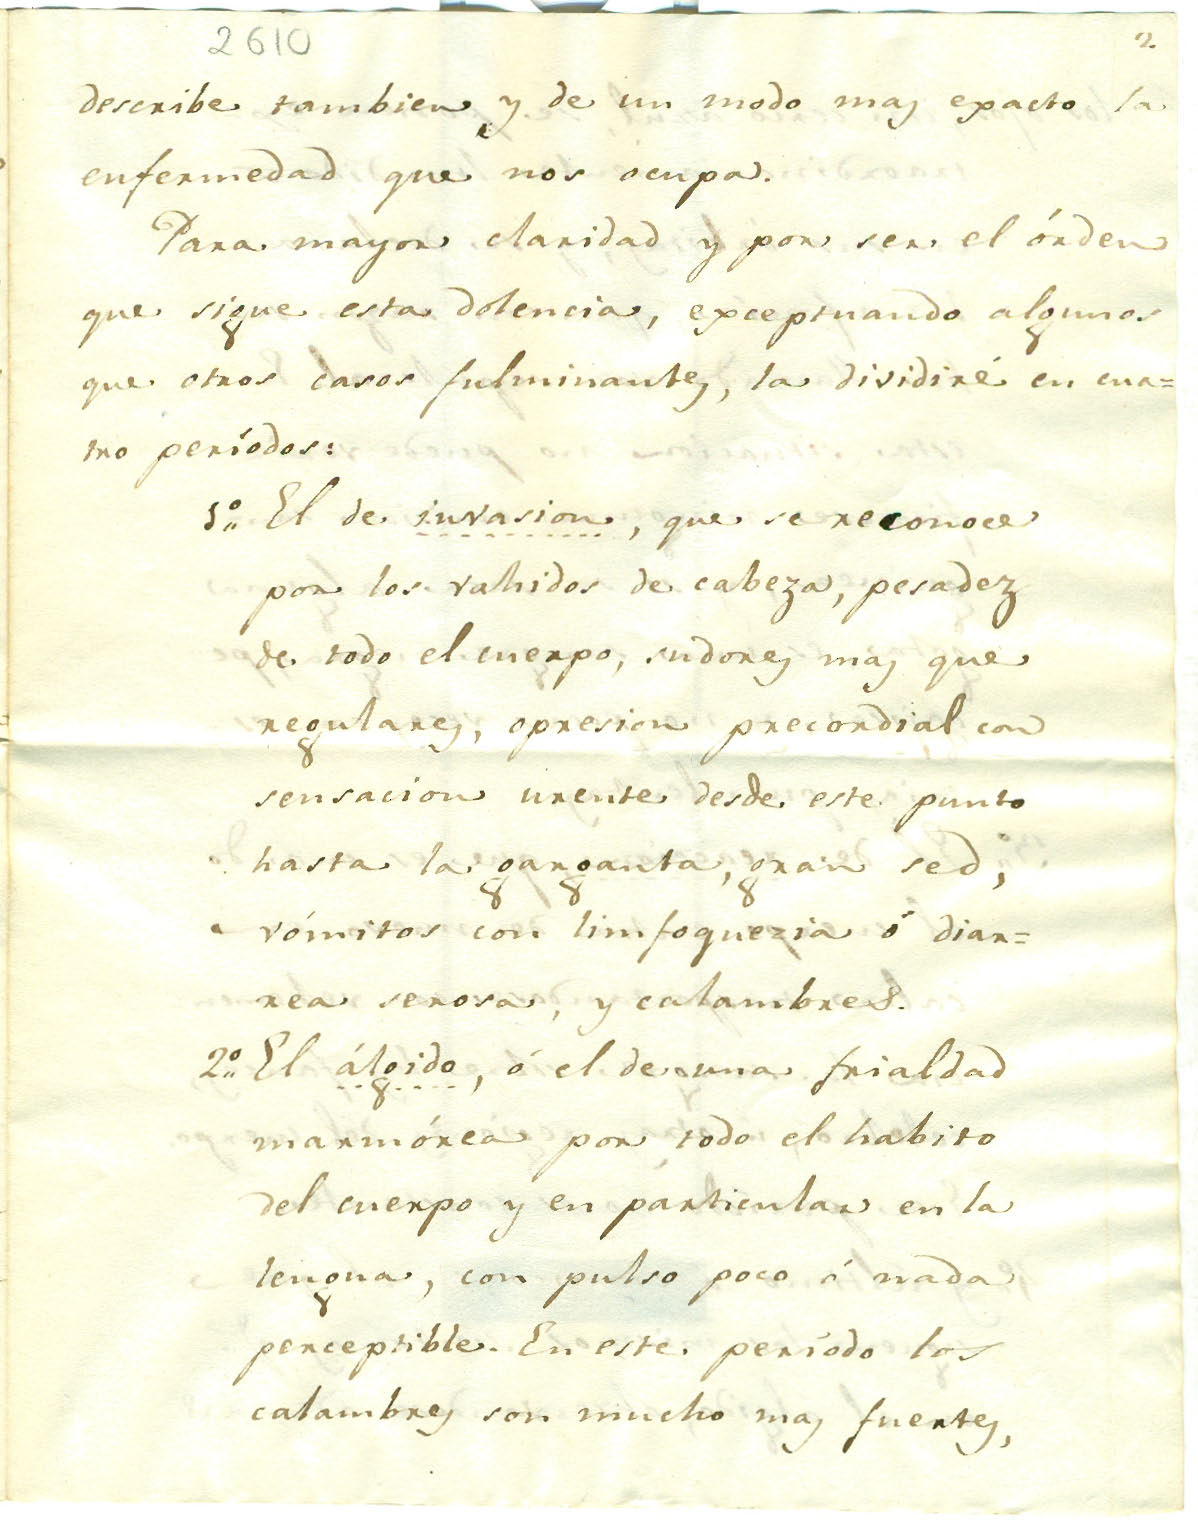 2610
2.
describe tambien y de un modo mas exacto la
enfermedad que nos ocupa.
Para mayor claridad y por ser el órden
que sigue esta dolencia, exceptuando algunos
que otros casos fulminantes, la dividiré en cua=
tro períodos:
1º El de invasion, que se reconoce
por los vahidos de cabeza, pesadez
de todo el cuerpo, sudores mas que
regulares, opresion precordial con
sensacion urente desde este punto
hasta la garganta, gran sed,
vómitos con limfoquezia ó diar=
rea serosa, y calambres.
2º El álgido, ó el de una frialdad
marmórea por todo el habito
del cuerpo y en particular en la
lengua, con pulso poco ó nada
perceptible. En este período los
calambres son mucho mas fuertes,